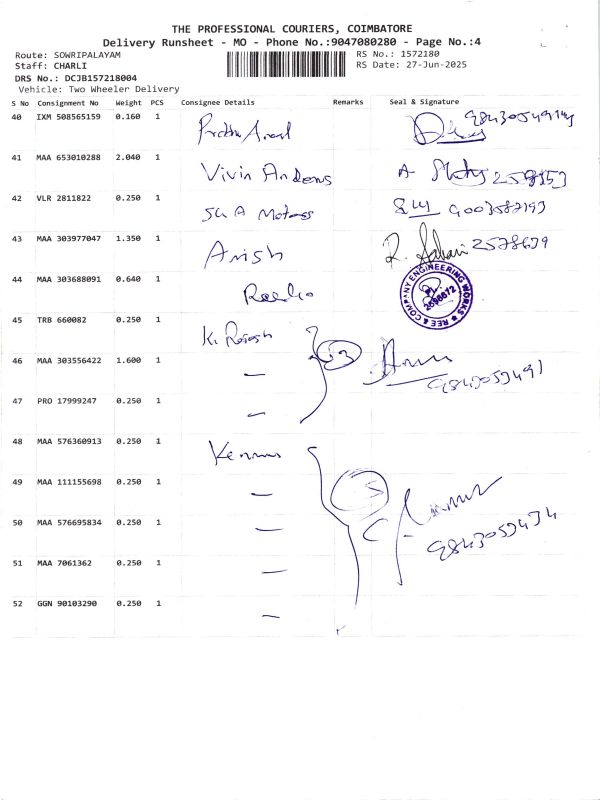 THE PROFESSIONAL COURIERS, COIMBATORE
Delivery Runsheet - MO - Phone No.:9047080280 - Page No.:4
Route: SOWRIPALAYAM
RS No.: 1572180
Staff: CHARLI
RS Date: 27-Jun-2025
DRS No.: DCJB157218004
Vehicle: Two Wheeler Delivery
S No Consignment No Weight PCS Consignee Details Remarks Seal & Signature
40 IXM 508565159 0.160 1
41 MAA 653010288 2.040 1 Vivin Andrews
42 VLR 2811822 0.250 1 Motors
43 MAA 303977047 1.350 1 Anish
44 MAA 303688091 0.640 1
REE & COMPANY ENGINEERING WORKS
45 TRB 660082 0.250 1
46 MAA 303556422 1.600 1 —
47 PRO 17999247 0.250 1 —
48 MAA 576360913 0.250 1
49 MAA 111155698 0.250 1 —
50 MAA 576695834 0.250 1 —
51 MAA 7061362 0.250 1 —
52 GGN 90103290 0.250 1 —